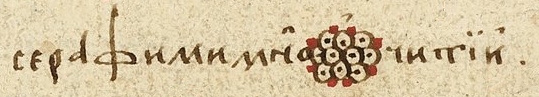 серафими мн҄оꙮ҆читїи҆.